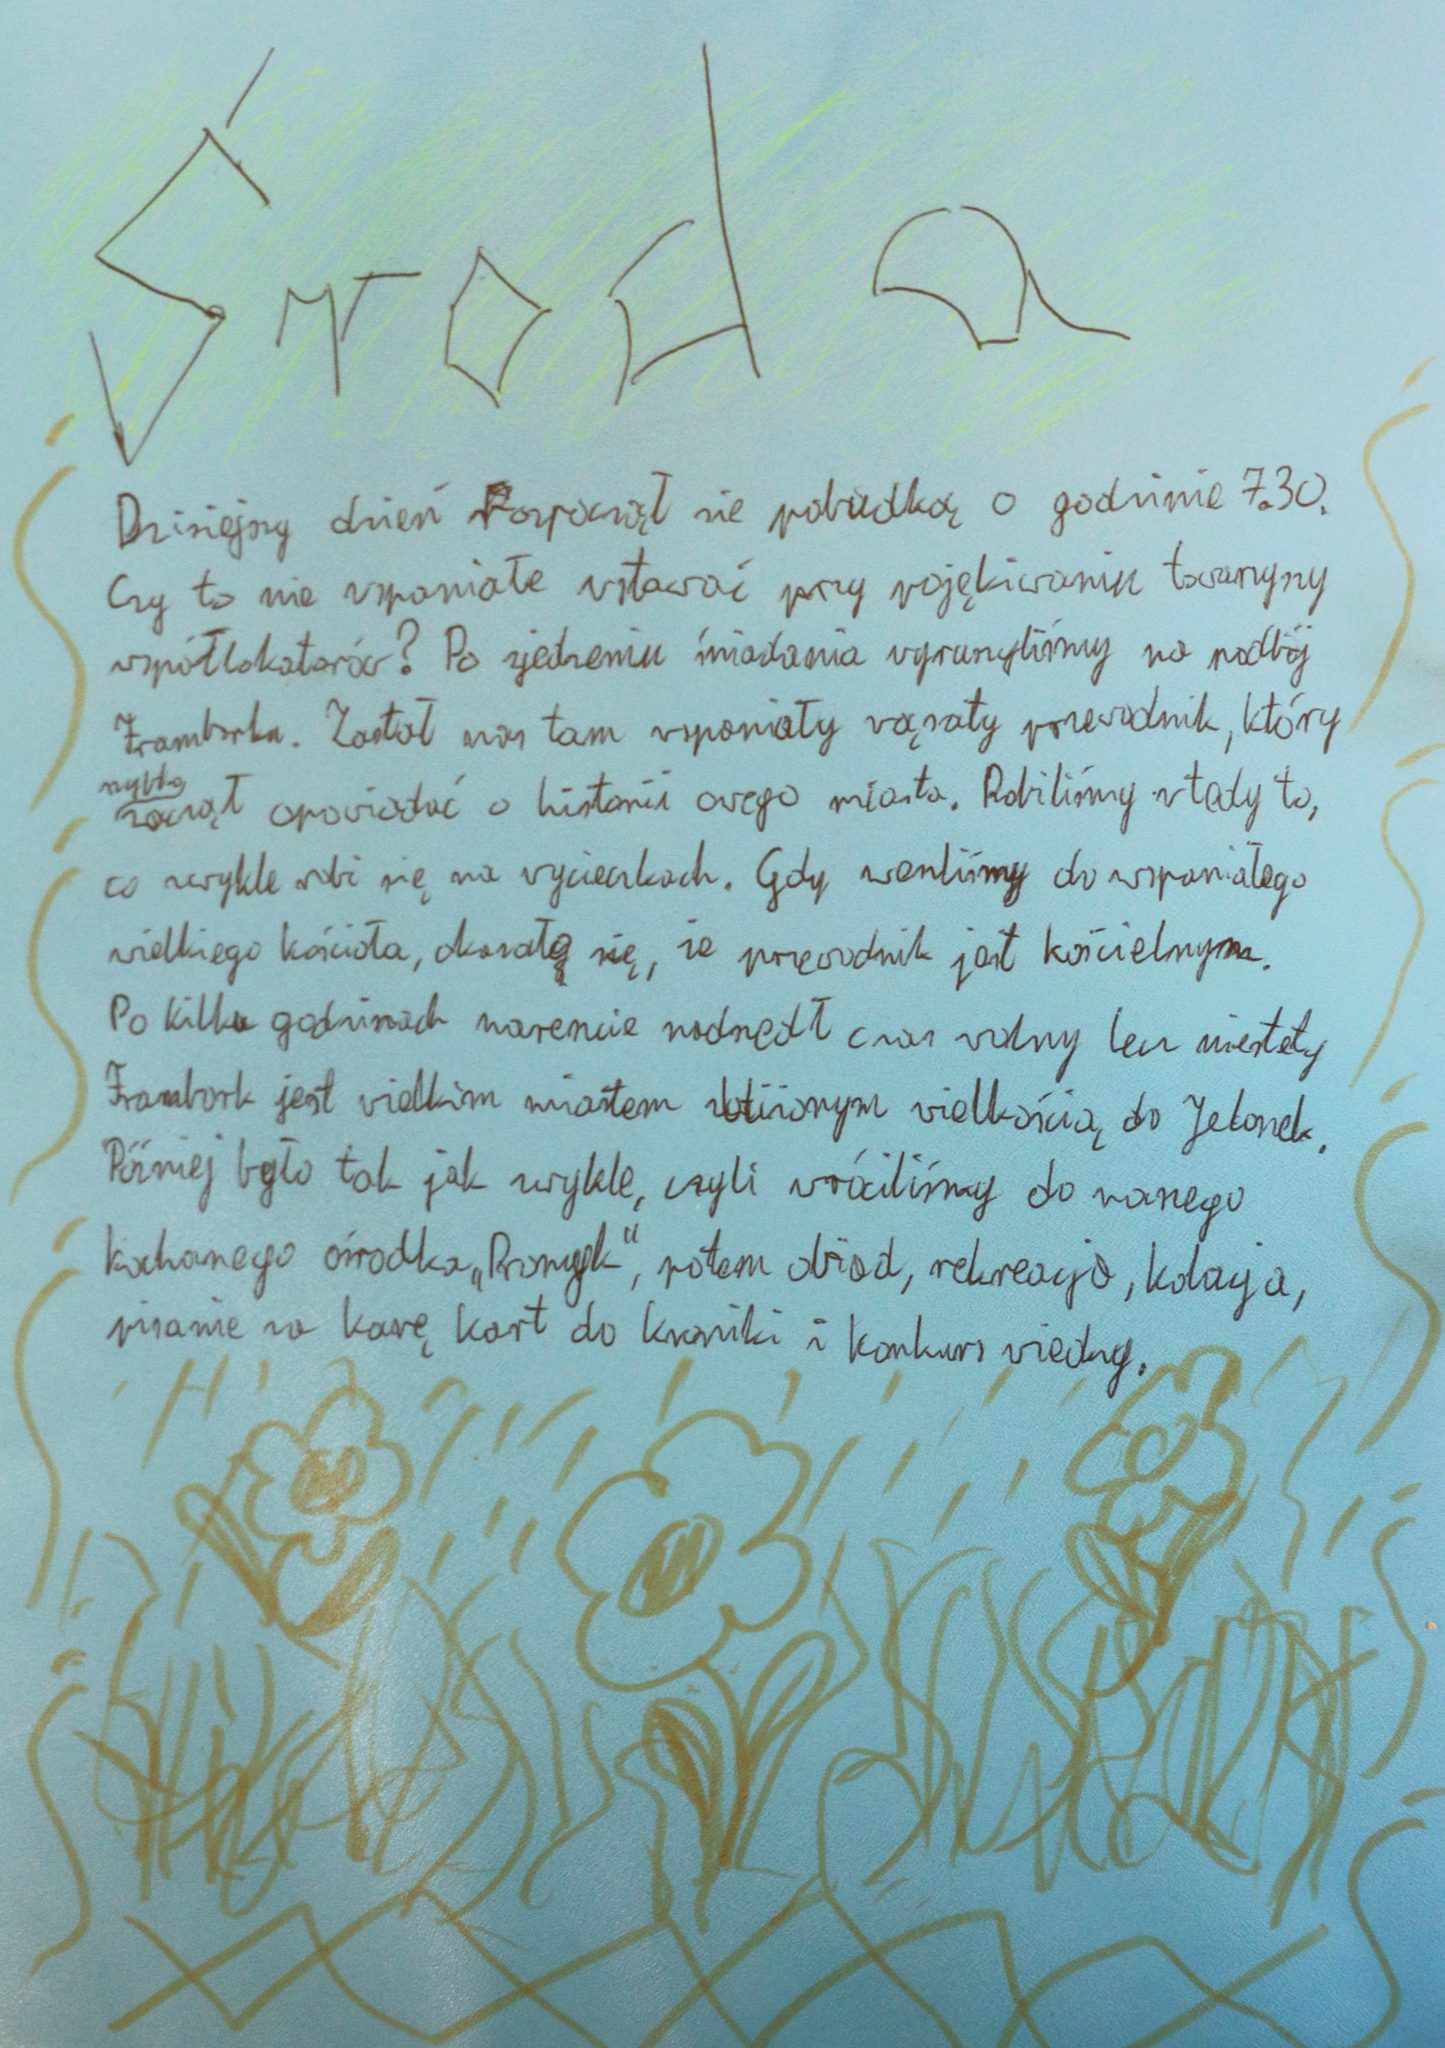 Środa
Dzisiejszy dzień Rozpoczął się pobudką o godzinie 7.30.
Czy to nie wspaniałe wstawać przy pojękiwaniu towarzyszy
współlokatorów? Po zjedzeniu śniadania wyruszyliśmy na podbój
Framborka. Zastał nas tam wspaniały wąsaty przewodnik, który
szybko
zaczął opowiadać o historii owego miasta. Robiliśmy wtedy to,
co zwykle robi się na wycieczkach. Gdy weszliśmy do wspaniałego
wielkiego kościoła, okazało się, że przewodnik jest kościelnym.
Po kilku godzinach nareszcie nadszedł czas wolny lecz niestety
Frambork jest wielkim miastem zbliżonym wielkością do Jelonek.
Później było tak jak zwykle, czyli wróciliśmy do naszego
kochanego ośrodka „Promyk", potem obiad, rekreacja, kolacja,
pisanie za karę kart do kroniki i konkurs wiedzy.